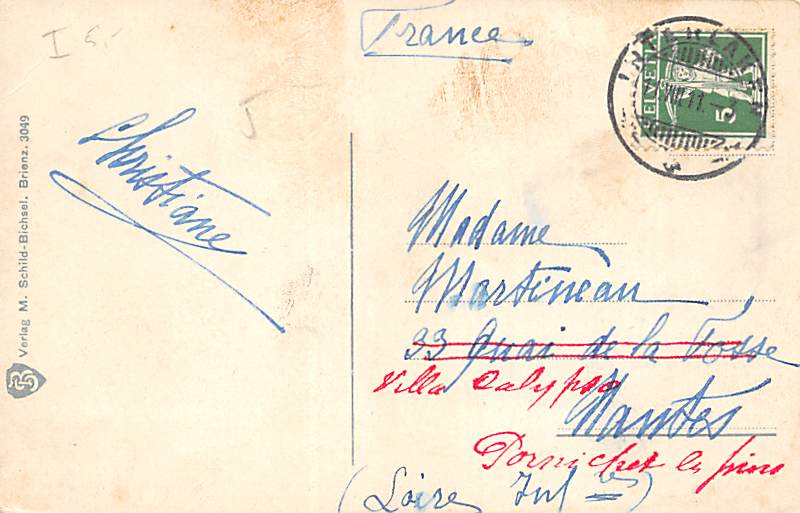 I 5.-
France
INTERLAKEN
VIII.11.-3
HELVETIA
5
5
Christiane
Verlag M. Schild-Bichsel. Brienz. 3049
Madame
Martineau
33 Quai de la Fosse
Villa Calypso
Nantes
Pornichet les pins
(Loire Inf res)